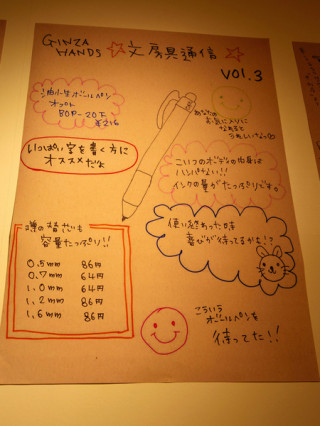 GINZA HANDS
☆文房具通信☆
VOL.3
油性ボールペン
BOP-20F
¥216
あなたの
お気に入りに
なれると
うれしいなっ
いっぱい字を書く方に
オススメだよ
こいつのボディの中身は
ハンパない!!
インクの量がたっぷりです。
使い終わった時
喜びが待ってるかも!?
替えだって
容量たっぷり!!
0.5mm 86円
0.7mm 64円
1.0mm 64円
1.2mm 86円
1.6mm 86円
こういう
ボールペンを
待ってた!!